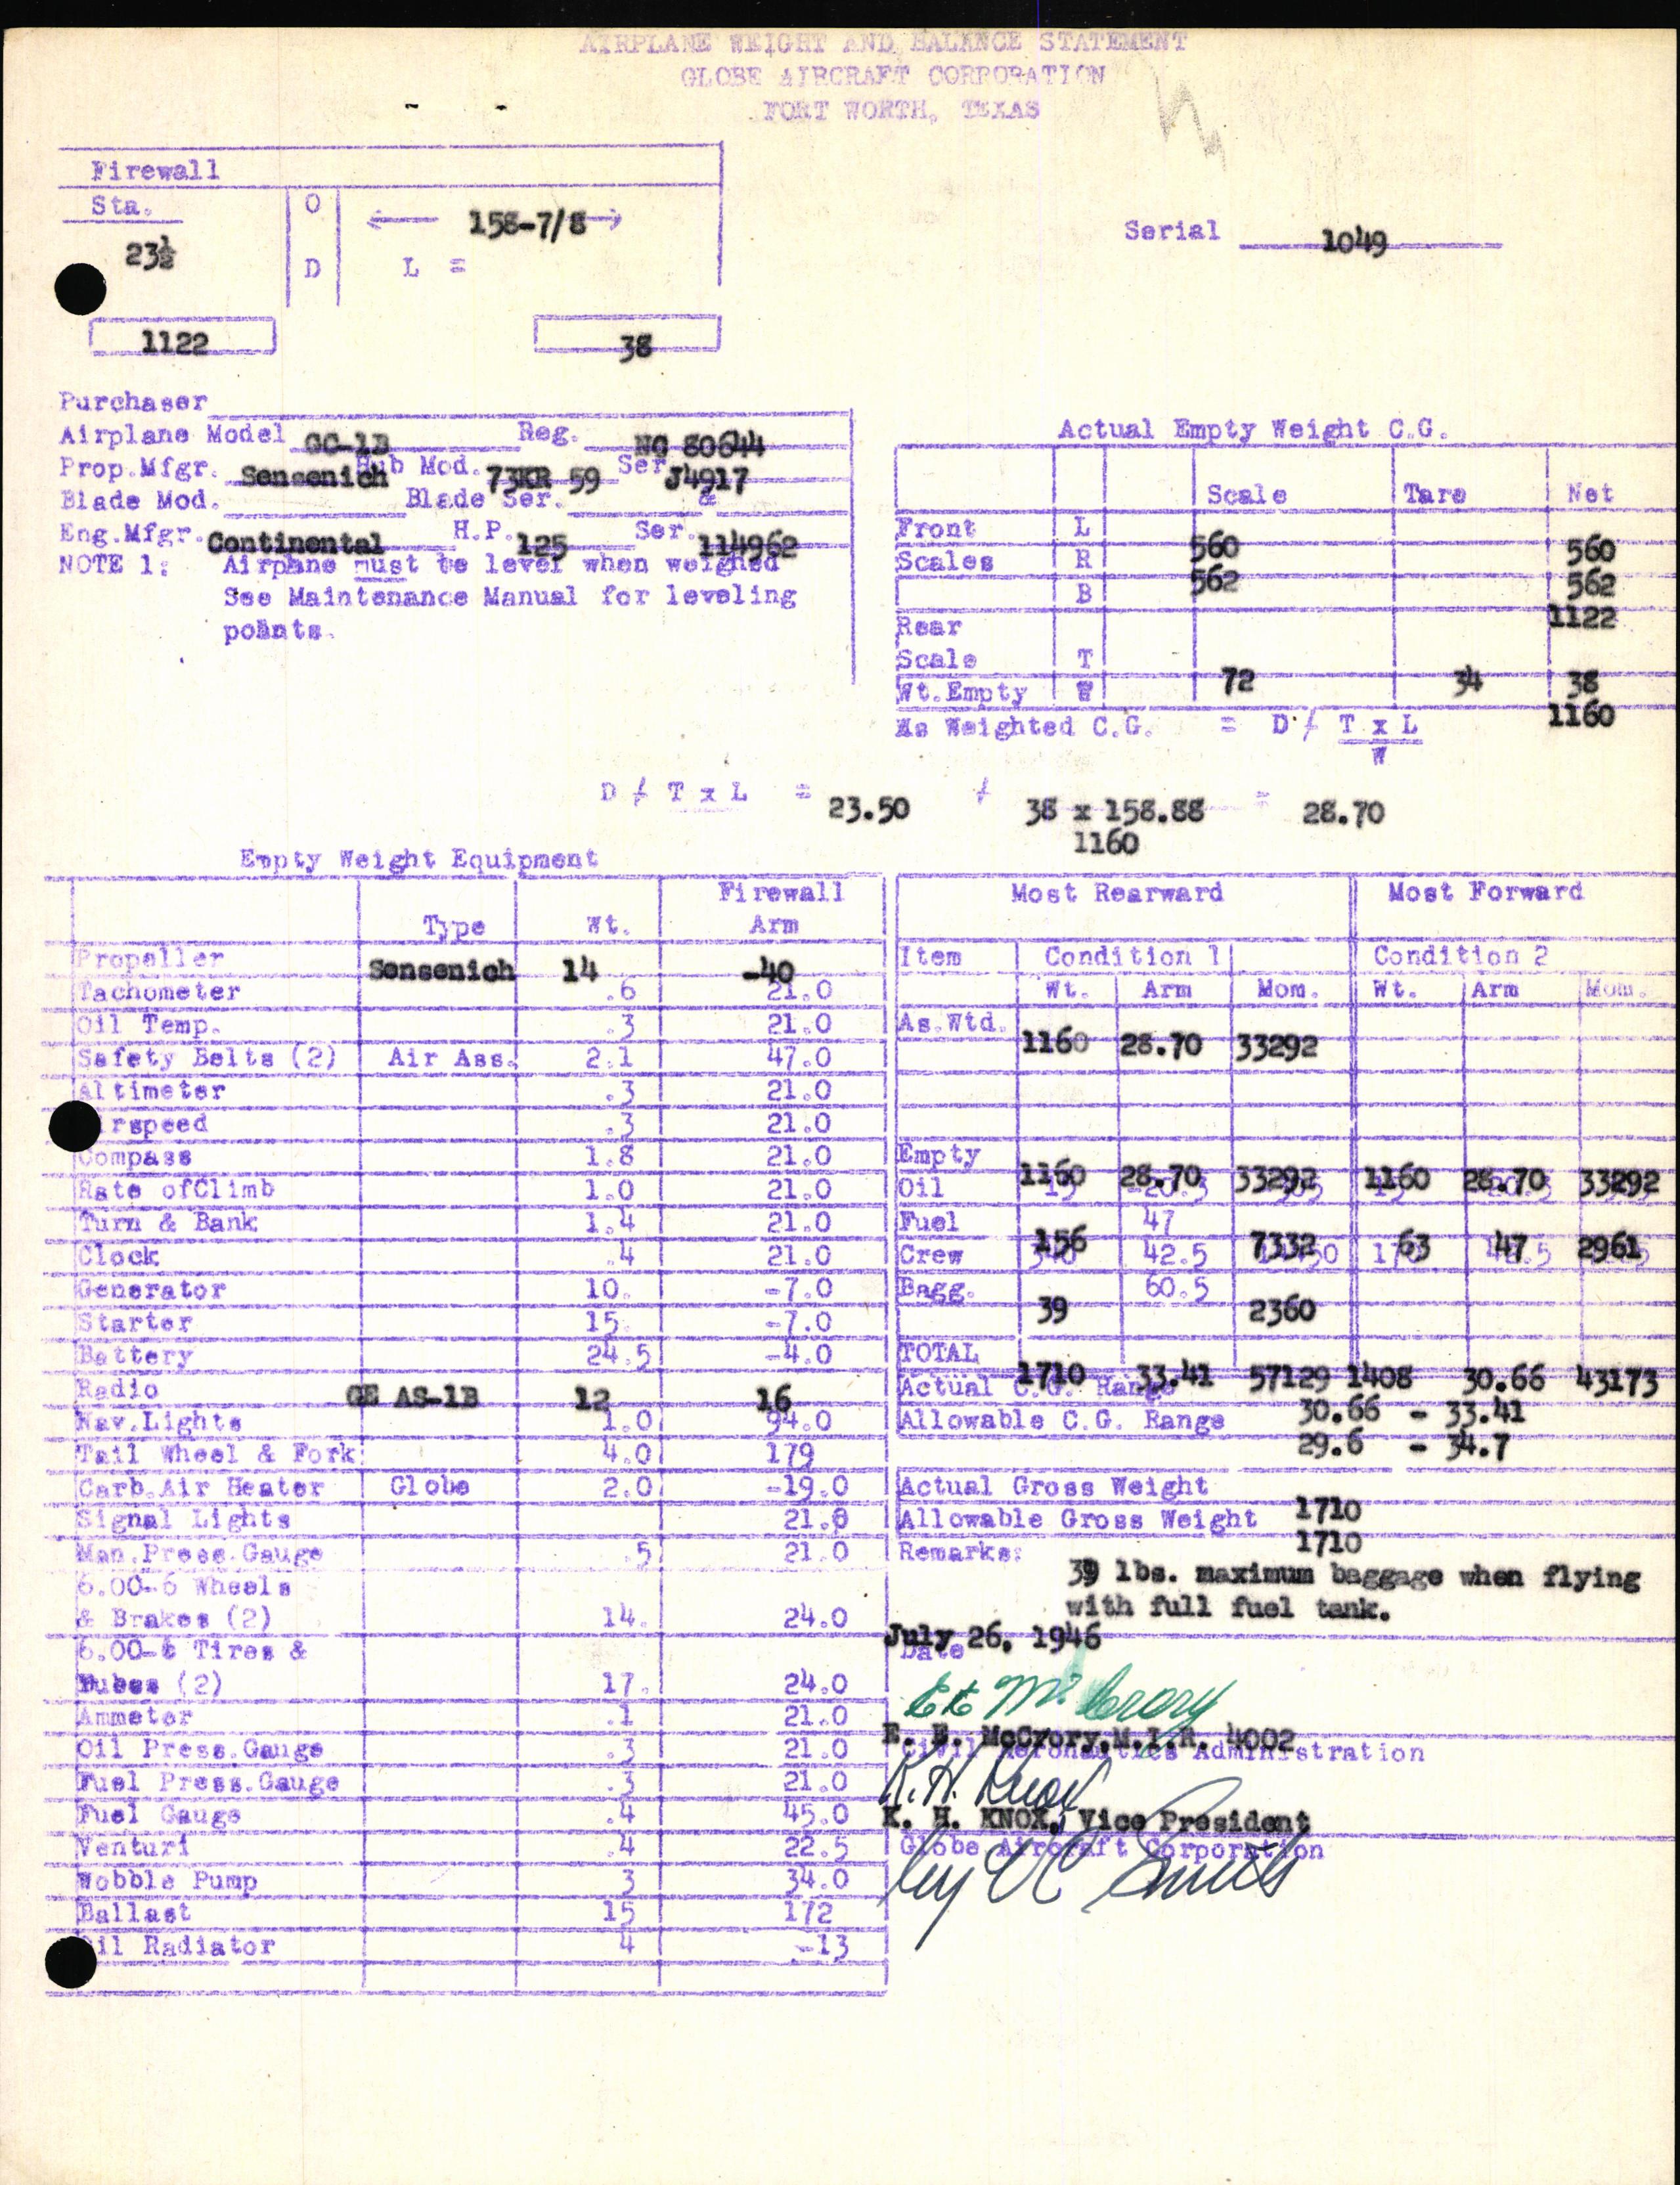 AIRPLANE WEIGHT AND BALANCE STATEMENT
GLOBE AIRCRAFT CORPORATION
FORT WORTH, TEXAS
Firewall
Sta. O 158-7/8
23½ D L =
Serial 1049
1122 38
Purchaser
Airplane Model GC-1B Reg. NC 80644
Prop.Mfgr. Sensenich Hub Mod. 73KR 59 Ser. J4917
Blade Mod. Blade Ser. &
Eng.Mfgr. Continental H.P. 125 Ser. 114962
NOTE 1: Airplane must be level when weighed
See Maintenance Manual for leveling
points.
Actual Empty Weight C.G.
Scale Tare Net
Front L 560 560
Scales R 562 562
B 1122
Rear
Scale T 72 34 38
Wt.Empty W 1160
As Weighted C.G. = D / T x L
W
D / T x L = 23.50 / 38 x 158.88 = 28.70
1160
Empty Weight Equipment
Type Wt. Firewall Arm
Propeller Sensenich 14 -40
Tachometer .6 21.0
Oil Temp. .3 21.0
Safety Belts (2) Air Ass. 2.1 47.0
Altimeter .3 21.0
rspeed .3 21.0
Compass 1.8 21.0
Rate ofClimb 1.0 21.0
Turn & Bank 1.4 21.0
Clock .4 21.0
Generator 10. -7.0
Starter 15. -7.0
Battery 24.5 -4.0
Radio GE AS-1B 12 16
Nav.Lights 1.0 94.0
Tail Wheel & Fork 4.0 179
Carb.Air Heater Globe 2.0 -19.0
Signal Lights 21.0
Man.Press.Gauge .5 21.0
6.00-6 Wheels
& Brakes (2) 14. 24.0
6.00-6 Tires &
Tubes (2) 17. 24.0
Ammeter .1 21.0
Oil Press.Gauge .3 21.0
Fuel Press.Gauge .3 21.0
Fuel Gauge .4 45.0
Venturi .4 22.5
Wobble Pump 3 34.0
Ballast 15 172
Oil Radiator 4 -13
Most Rearward Most Forward
Item Condition 1 Condition 2
Wt. Arm Mom. Wt. Arm Mom.
As.Wtd. 1160 28.70 33292
Empty 1160 28.70 33292 1160 28.70 33292
Oil
Fuel 156 47 7332 63 47 2961
Crew 340 42.5
Bagg. 39 60.5 2360
TOTAL 1710 33.41 57129 1408 30.66 43173
Actual C.G. Range 30.66 - 33.41
Allowable C.G. Range 29.6 - 34.7
Actual Gross Weight 1710
Allowable Gross Weight 1710
Remarks: 39 lbs. maximum baggage when flying
with full fuel tank.
July 26, 1946
Date
E. E. McCrory
E. E. McCrory,M.I.R. 4002
Civil Aeronautics Administration
K.H. Knox
K. H. KNOX, Vice President
Globe Aircraft Corporation
by Smith